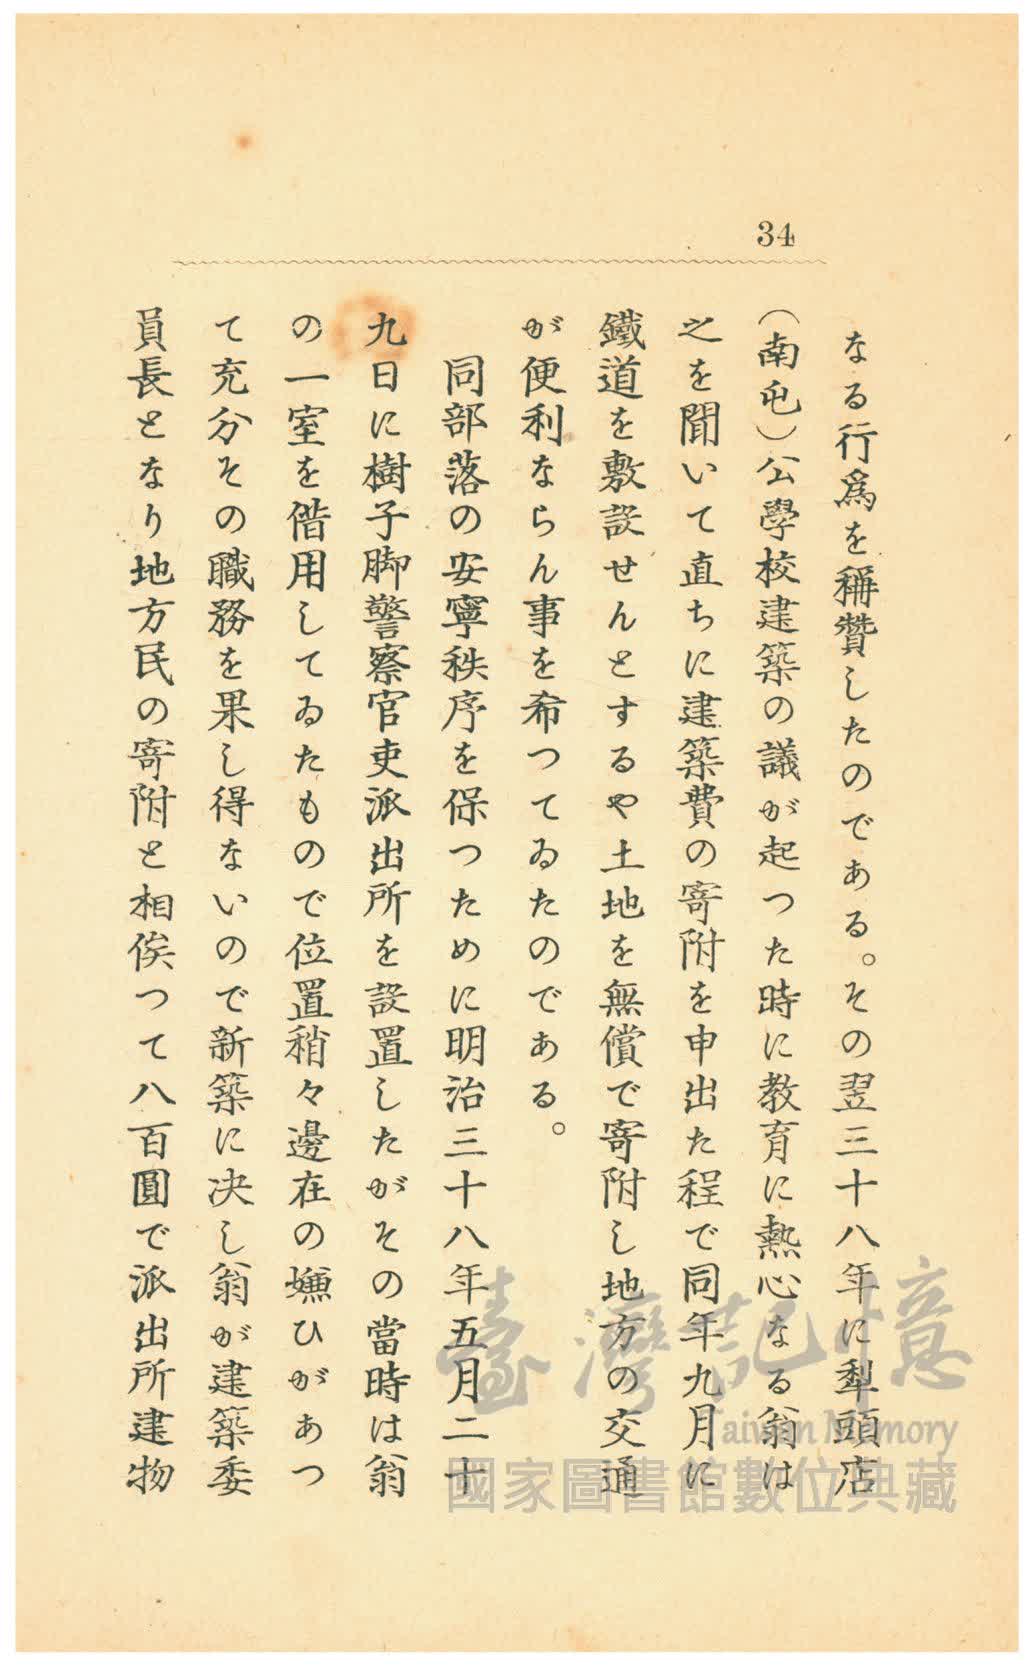 34
なる行爲を稱贊したのである。その翌三十八年に犁頭店
(南屯)公學校建築の議が起つた時に教育に熱心なる翁は
之を聞いて直ちに建築費の寄附を申出た程で同年九月に
鐵道を敷設せんとするや土地を無償で寄附し地方の交通
が便利ならん事を希つてゐたのである。
同部落の安寧秩序を保つために明治三十八年五月二十
九日に樹子脚警察官吏派出所を設置したがその當時は翁
の一室を借用してゐたもので位置稍々邊在の嫌ひがあつ
て充分その職務を果し得ないので新築に決し翁が建築委
員長となり地方民の寄附と相俟つて八百圓で派出所建物
臺灣記憶
Taiwan Memory
國家圖書館數位典藏